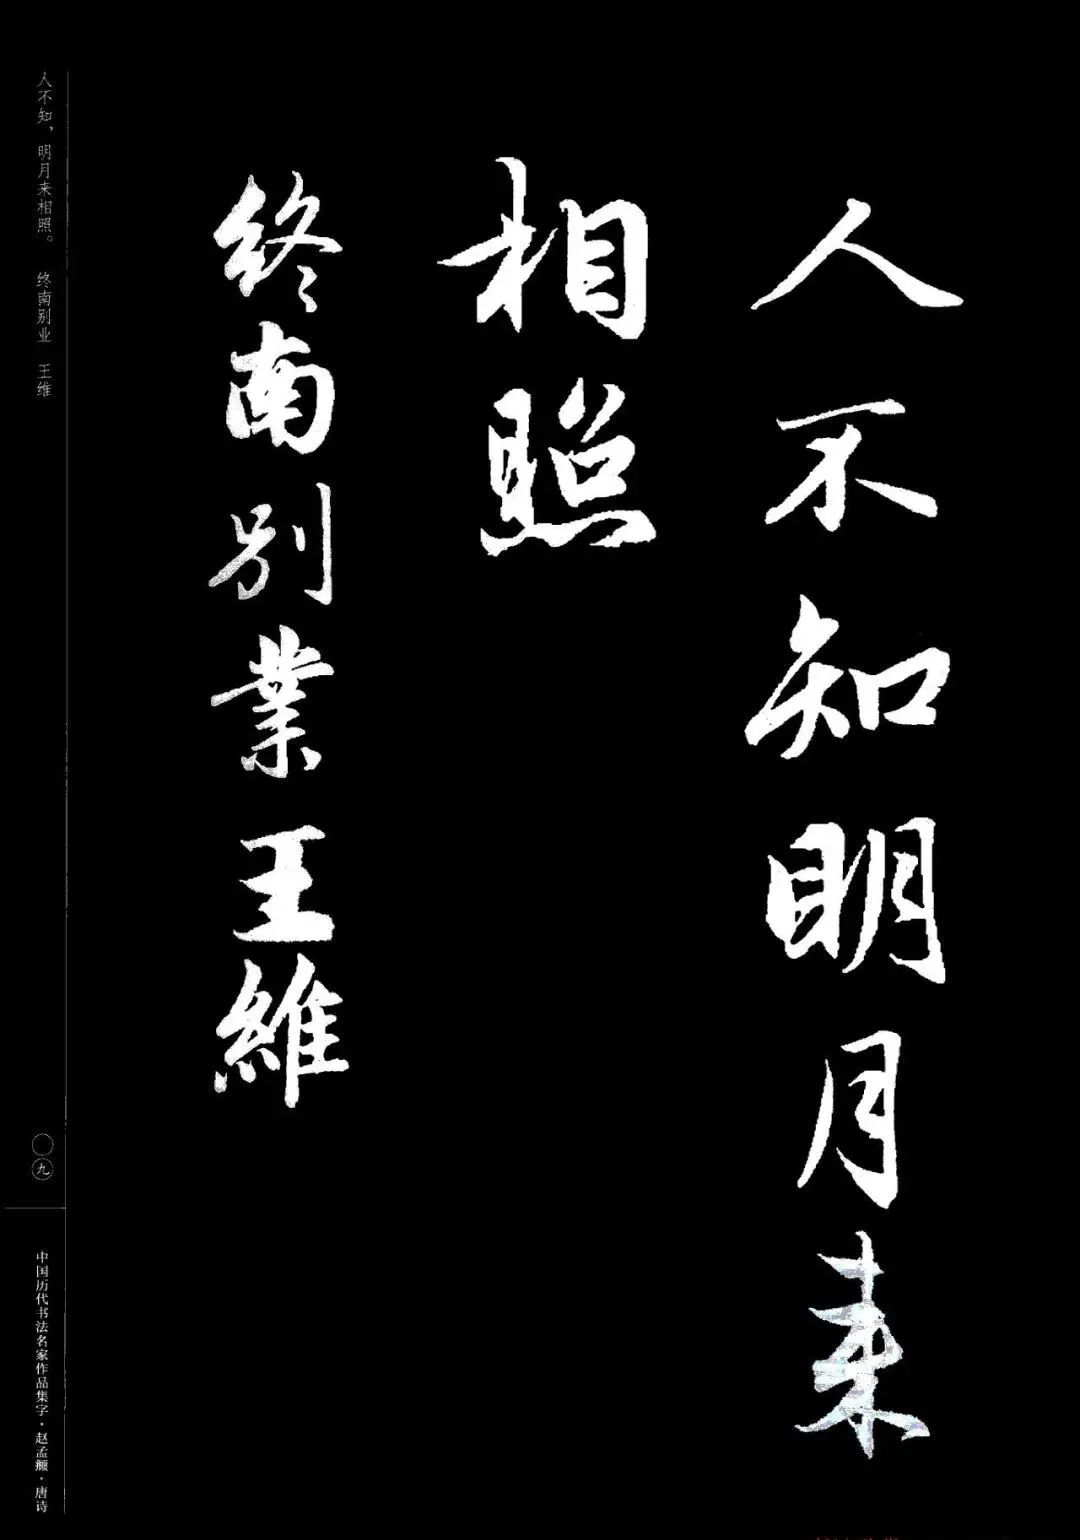 人不知明月来
相照
终南别業王維
人不知，明月来相照。 终南别业 王维
〇九
中国历代书法名家作品集字·赵孟頫·唐诗